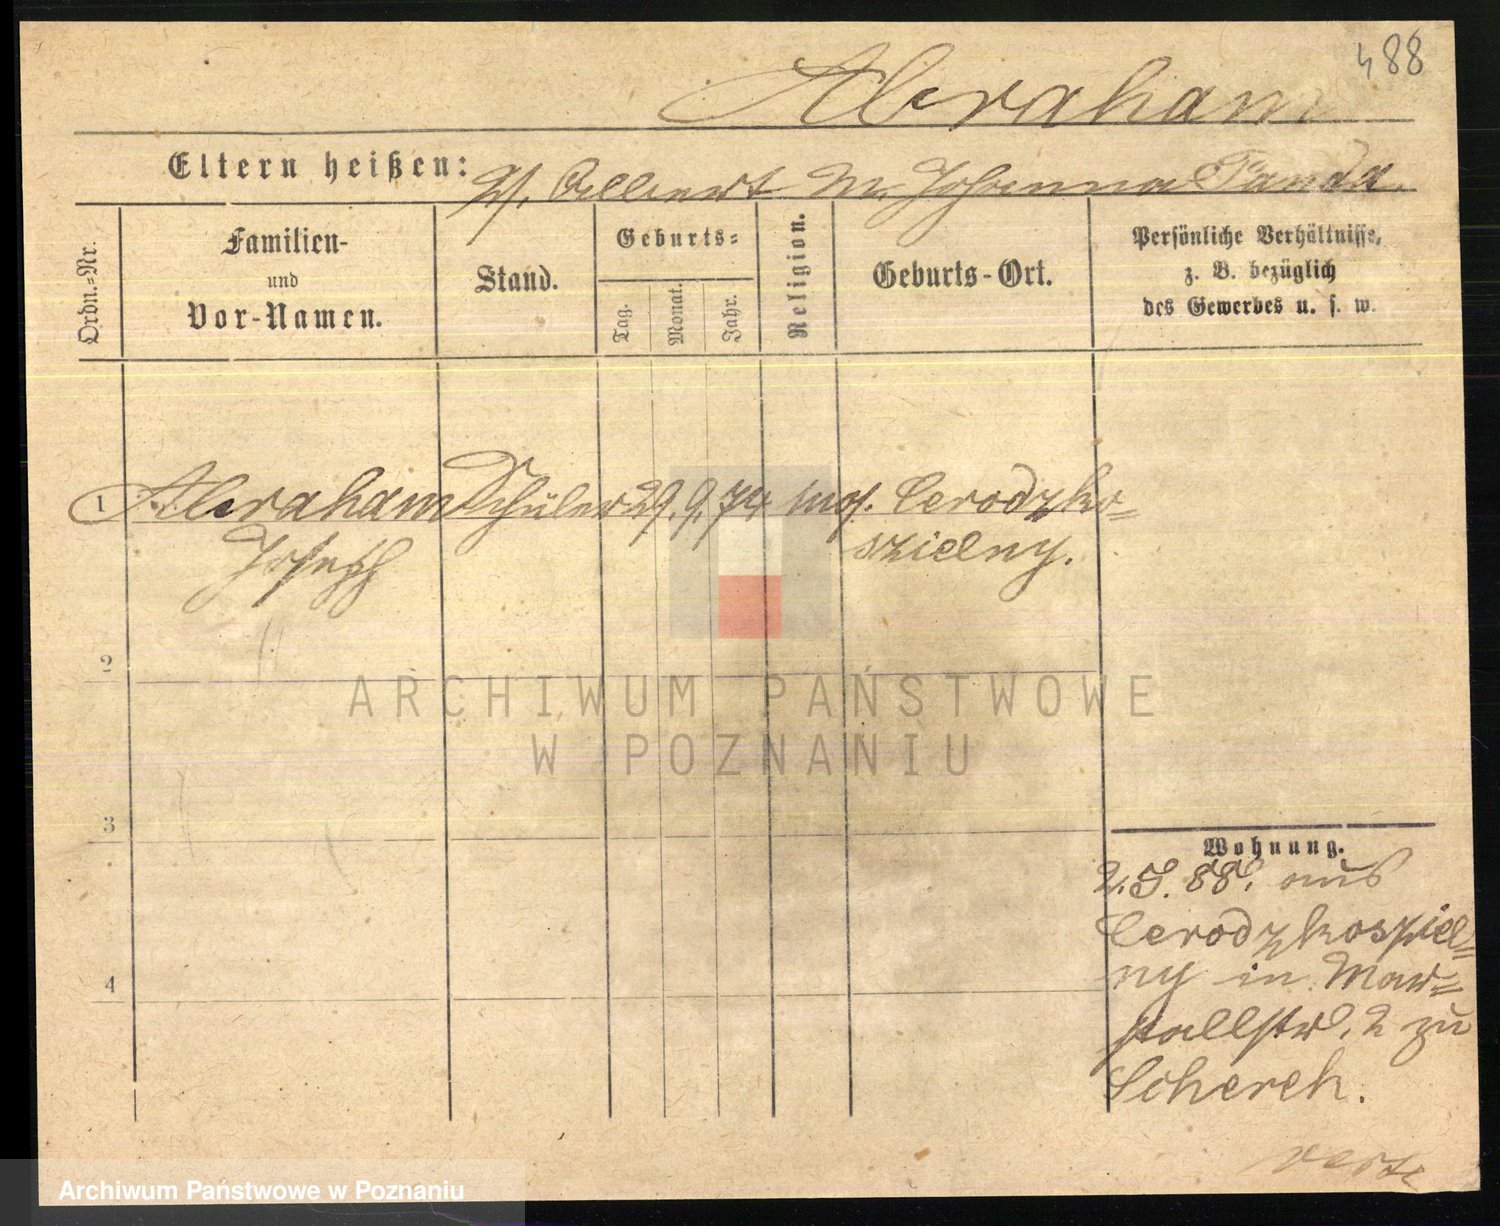 488
Abraham
Eltern heißen: V. Albert M. Johanna Panda
Ordn.-Nr.
Familien-
und
Vor-Namen.
Stand.
Geburts-
Tag.
Monat.
Jahr.
Religion.
Geburts-Ort.
Persönliche Verhältnisse,
z. B. bezüglich
des Gewerbes u. s. w.
1 Abraham Schüler 29. 9. 74 mos. Cerodzko-
Joseph szielny.
2
ARCHIWUM PAŃSTWOWE
W POZNANIU
3
Wohnung.
2. 5. 88. aus
Cerodzkosziel-
ny in Mar-
stallstr. 2 zu
Scherek.
4
verte
Archiwum Państwowe w Poznaniu